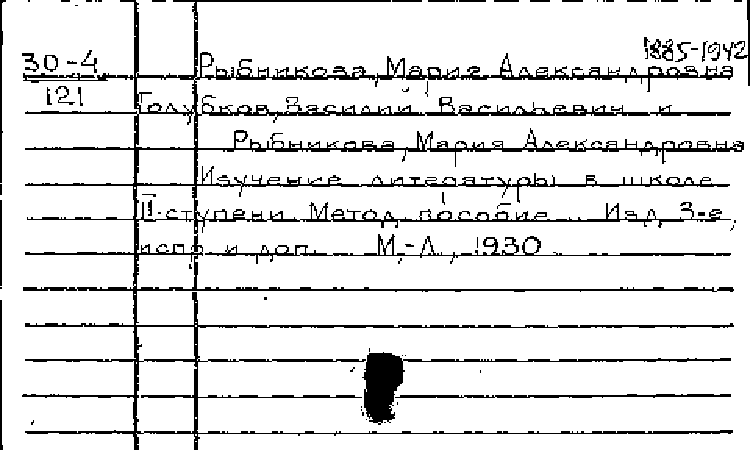 1885-1942
30-4 Рыбникова, Мария Александровна
121 Голубков, Василий Васильевич и
Рыбникова, Мария Александровна
Изучение литературы в школе
II ступени. Метод. пособие. Изд. 3-е,
испр. и доп. М.-Л., 1930